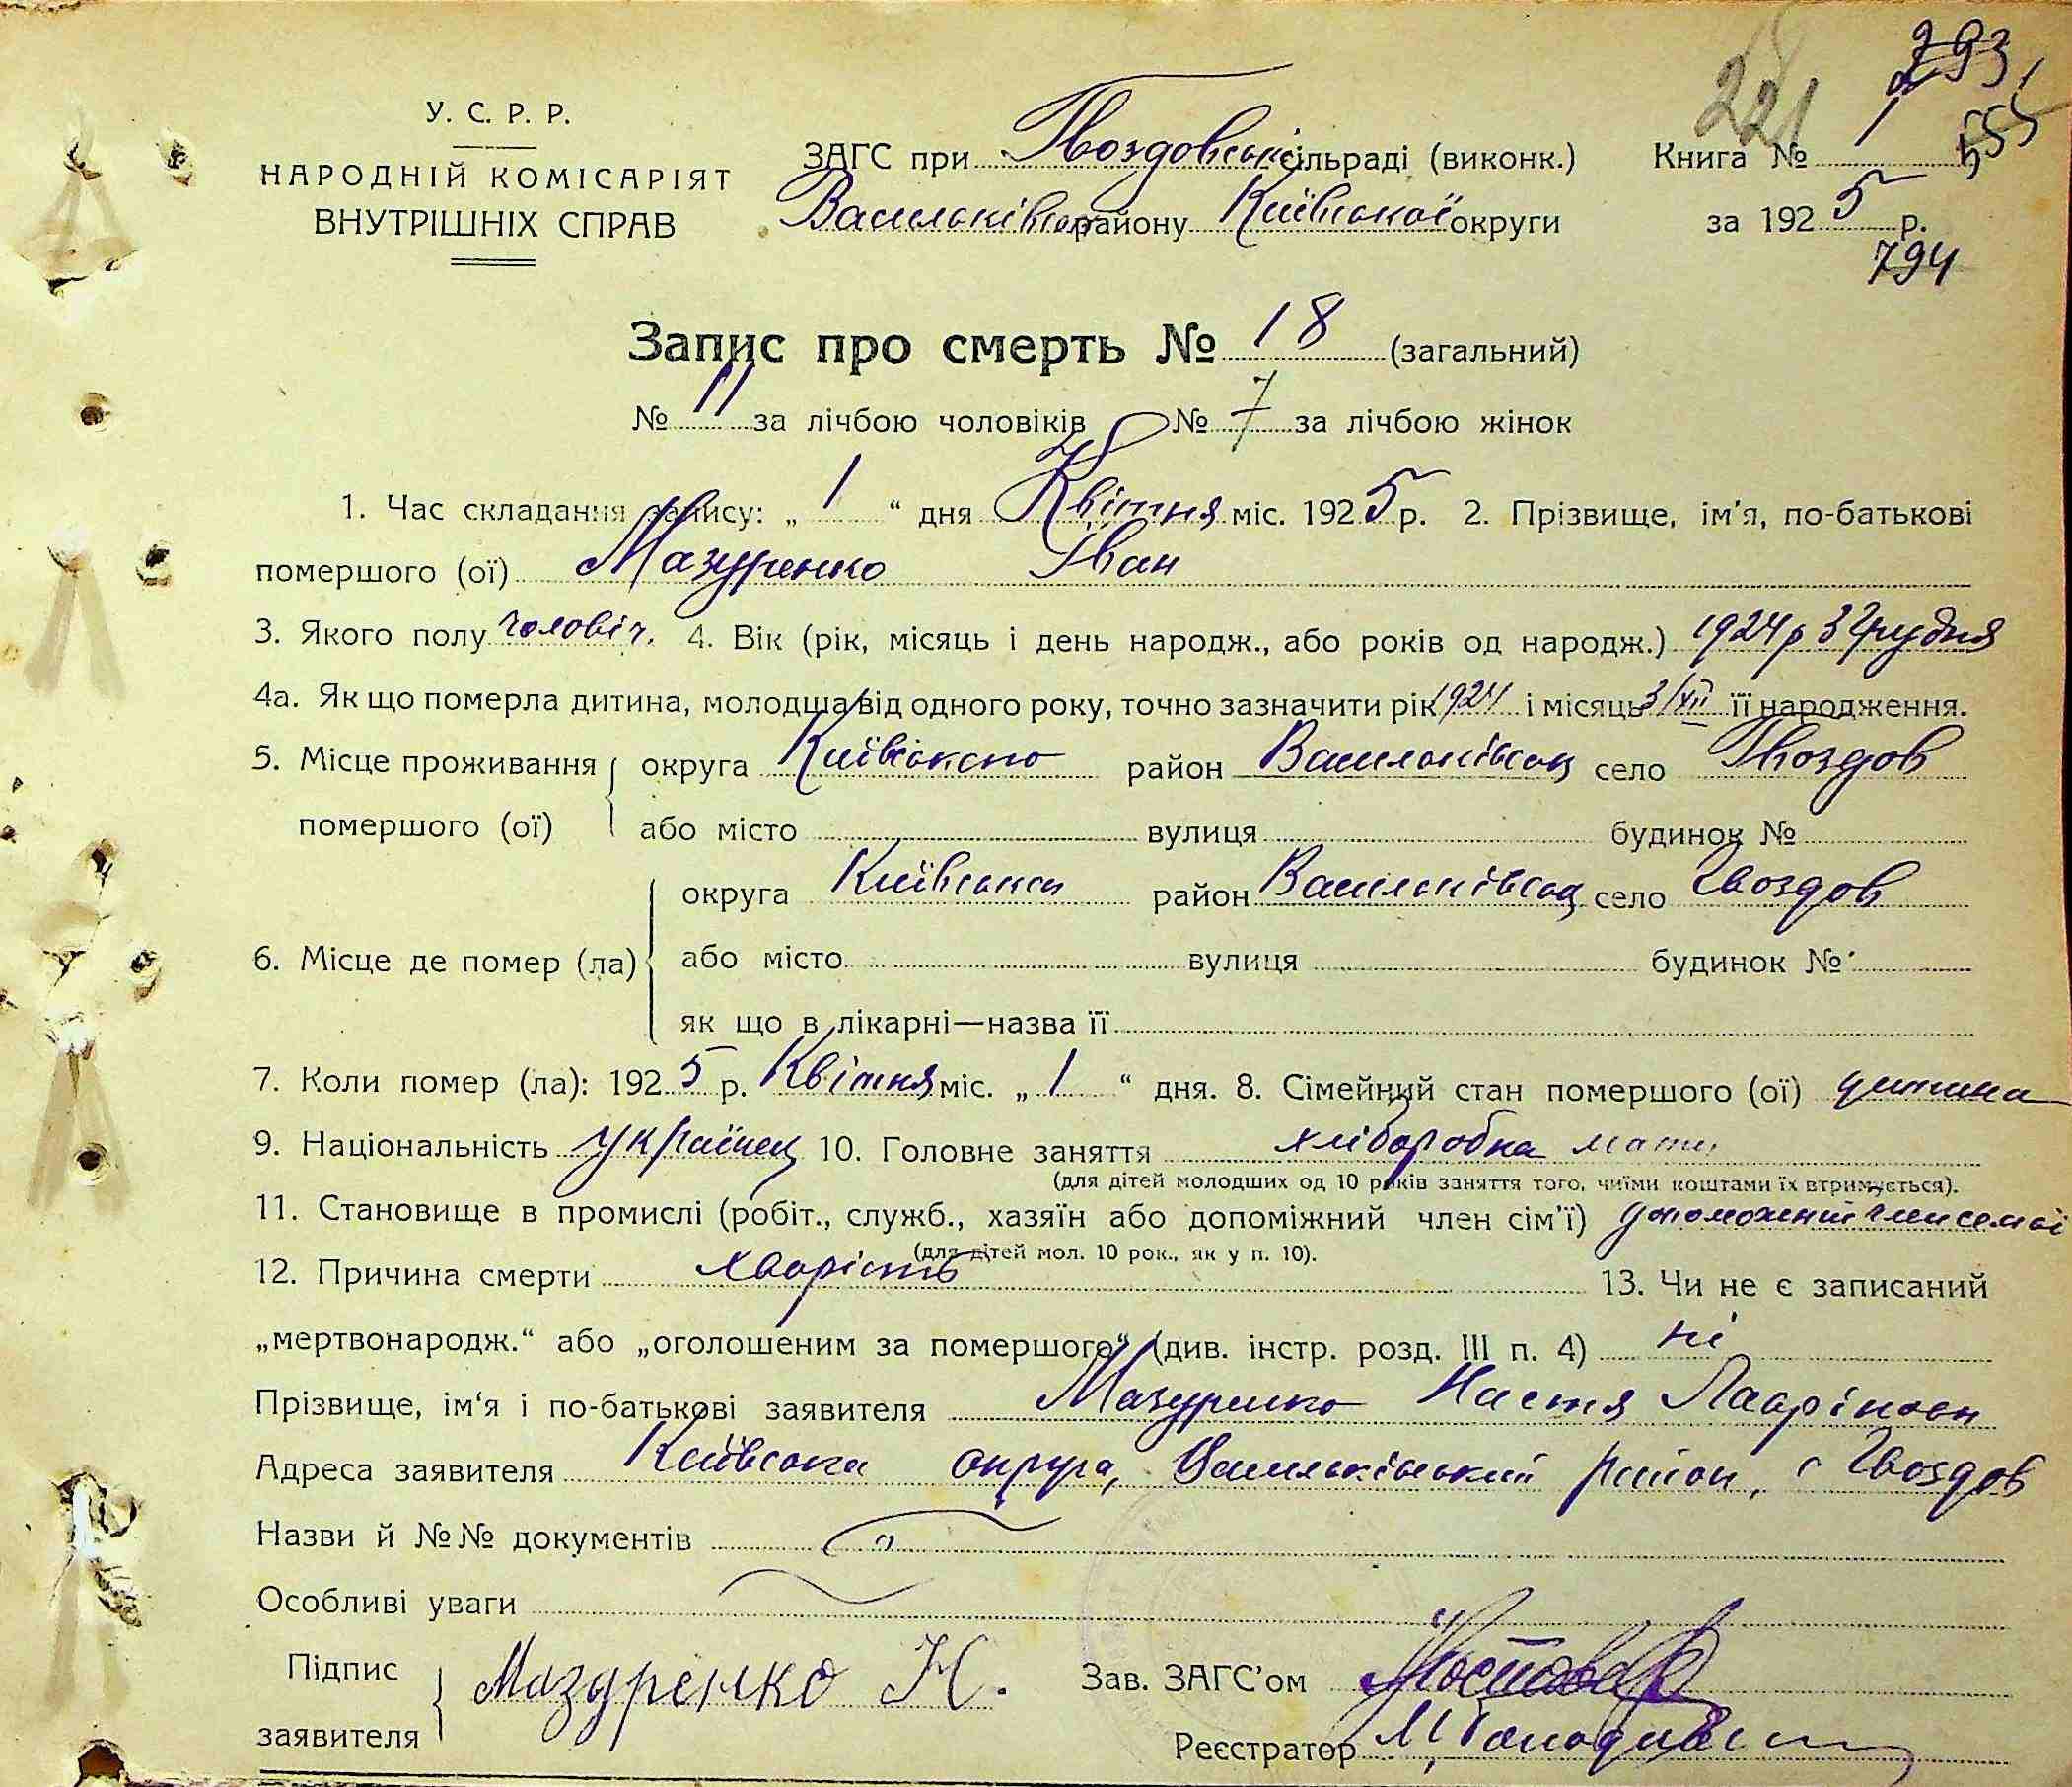 793
221
1
555
У. С. Р. Р.
НАРОДНІЙ КОМІСАРІЯТ
ВНУТРІШНІХ СПРАВ
ЗАГС при Гвоздовській сільраді (виконк.)
Васильківськ району Київської округи
Книга № 1
за 1925 р.
794
Запис про смерть № 18 (загальний)
№ 11 за лічбою чоловіків № 7 за лічбою жінок
1. Час складання запису: „ 1 “ дня Квітня міс. 1925 р. 2. Прізвище, ім’я, по-батькові
помершого (ої) Мазуренко Іван
3. Якого полу чоловіч. 4. Вік (рік, місяць і день народж., або років од народж.) 1924 р 3 Грудня
4а. Як що померла дитина, молодша від одного року, точно зазначити рік 1924 і місяць 3/XII її народження.
5. Місце проживання помершого (ої) округа район Васильківськ село Гвоздов
або місто вулиця будинок №
6. Місце де помер (ла) округа Київська район Васильківськ село Гвоздов
або місто вулиця будинок №
як що в лікарні—назва її
7. Коли помер (ла): 1925 р. Квітня міс. „ 1 “ дня. 8. Сімейний стан помершого (ої) дитина
9. Національність українец 10. Головне заняття хліборобка мати
(для дітей молодших од 10 років заняття того, чиїми коштами їх втримується).
11. Становище в промислі (робіт., служб., хазяїн або допоміжний член сім’ї)
(для дітей мол. 10 рок., як у п. 10).
12. Причина смерти хворість 13. Чи не є записаний
„мертвонародж.“ або „оголошеним за помершого“ (див. інстр. розд. III п. 4) ні
Прізвище, ім‘я і по-батькові заявителя Мазуренко Настя
Адреса заявителя Київська округа, Васильківський район, с Гвоздов
Назви й №№ документів
Особливі уваги
Підпис заявителя Мазуренко Н.
Зав. ЗАГС’ом
Реєстратор